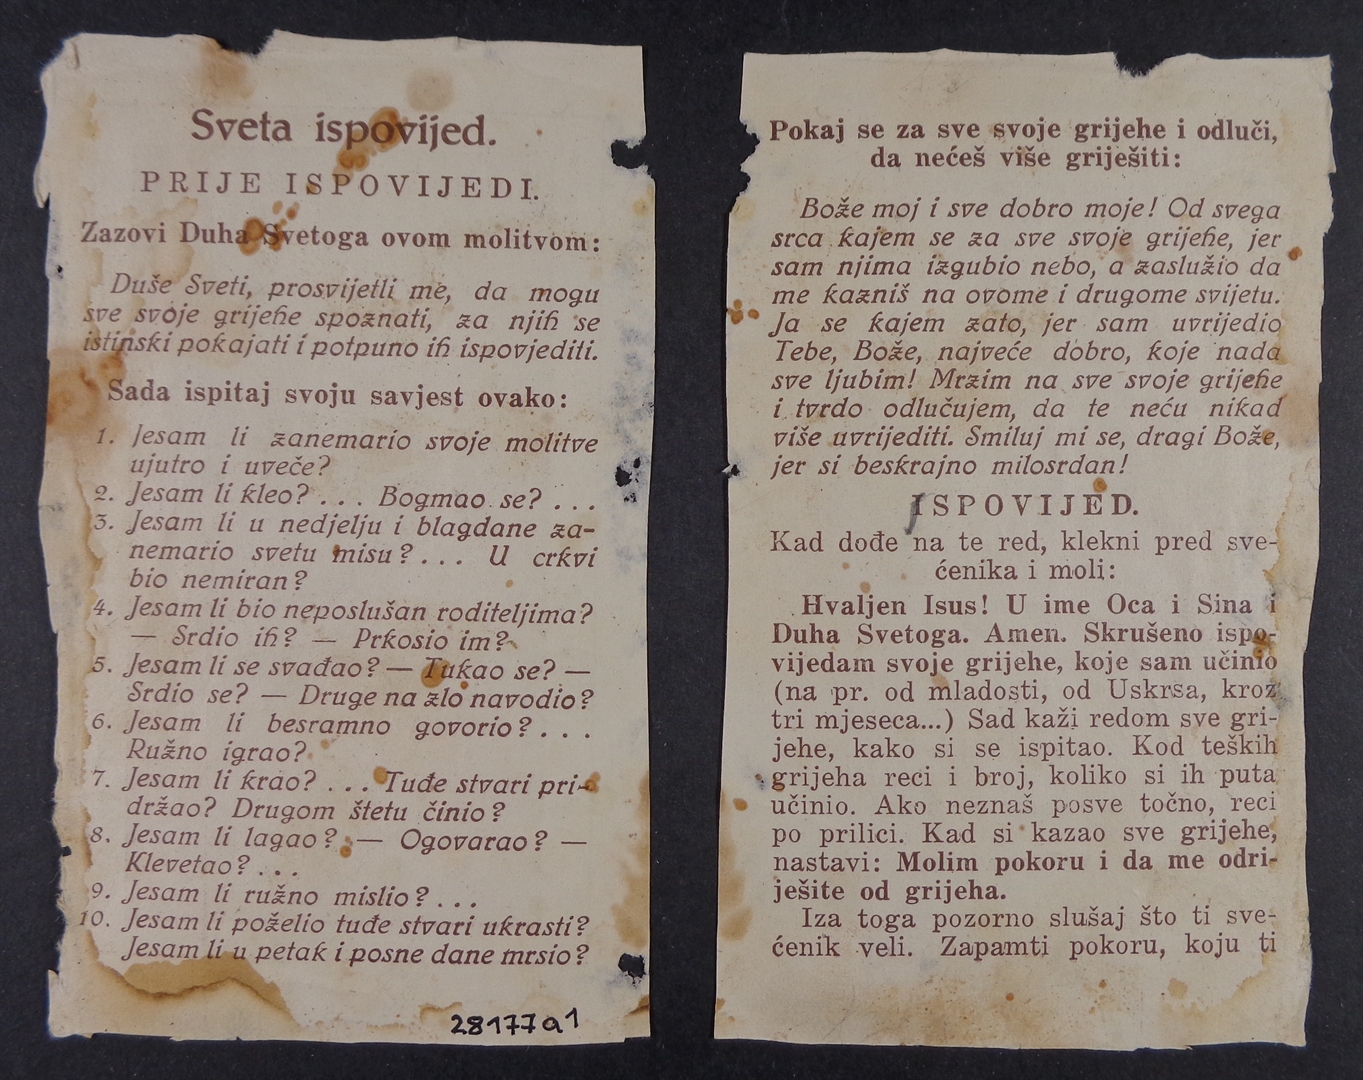 Sveta ispovijed.
PRIJE ISPOVIJEDI.
Zazovi Duha Svetoga ovom molitvom:
Duše Sveti, prosvijetli me, da mogu
sve svoje grijehe spoznati, za njih se
istinski pokajati i potpuno ih ispovjediti.
Sada ispitaj svoju savjest ovako:
1. Jesam li zanemario svoje molitve
ujutro i uveče?
2. Jesam li kleo? . . . Bogmao se? . . .
3. Jesam li u nedjelju i blagdane za-
nemario svetu misu? . . . U crkvi
bio nemiran?
4. Jesam li bio neposlušan roditeljima?
— Srdio ih? — Prkosio im?
5. Jesam li se svađao? — Tukao se? —
Srdio se? — Druge na zlo navodio?
6. Jesam li besramno govorio? . . .
Ružno igrao?
7. Jesam li krao? . . . Tuđe stvari pri-
držao? Drugom štetu činio?
8. Jesam li lagao? — Ogovarao? —
Klevetao? . . .
9. Jesam li ružno mislio? . . .
10. Jesam li poželio tuđe stvari ukrasti?
Jesam li u petak i posne dane mrsio?
28177a1
Pokaj se za sve svoje grijehe i odluči,
da nećeš više griješiti:
Bože moj i sve dobro moje! Od svega
srca kajem se za sve svoje grijehe, jer
sam njima izgubio nebo, a zaslužio da
me kazniš na ovome i drugome svijetu.
Ja se kajem zato, jer sam uvrijedio
Tebe, Bože, najveće dobro, koje nada
sve ljubim! Mrzim na sve svoje grijehe
i tvrdo odlučujem, da te neću nikad
više uvrijediti. Smiluj mi se, dragi Bože,
jer si beskrajno milosrdan!
ISPOVIJED.
Kad dođe na te red, klekni pred sve-
ćenika i moli:
Hvaljen Isus! U ime Oca i Sina i
Duha Svetoga. Amen. Skrušeno ispo-
vijedam svoje grijehe, koje sam učinio
(na pr. od mladosti, od Uskrsa, kroz
tri mjeseca...) Sad kaži redom sve gri-
jehe, kako si se ispitao. Kod teških
grijeha reci i broj, koliko si ih puta
učinio. Ako neznaš posve točno, reci
po prilici. Kad si kazao sve grijehe,
nastavi: Molim pokoru i da me odri-
ješite od grijeha.
Iza toga pozorno slušaj što ti sve-
ćenik veli. Zapamti pokoru, koju ti